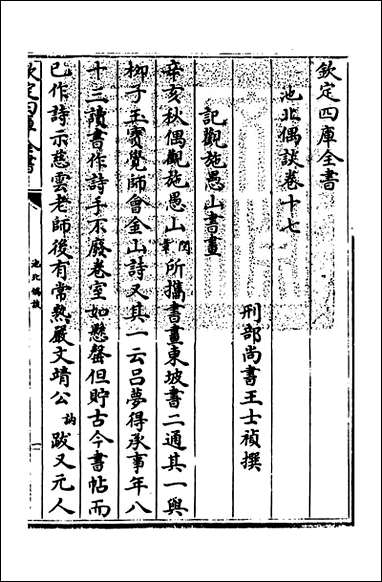 欽定四庫全書
池北偶談卷十七
刑部尚書王士禎撰
記觀施愚山書畫
辛亥秋偶觀施愚山閏章所攜書畫東坡書二通其一與
柳子玉寶覺師會金山詩又其一云呂夢得承事年八
十三讀書作詩手不廢卷室如懸罄但貯古今書帖而
已作詩示慈雲老師後有常熟嚴文靖公訥跋又元人
欽定四庫全書
池北偶談
一